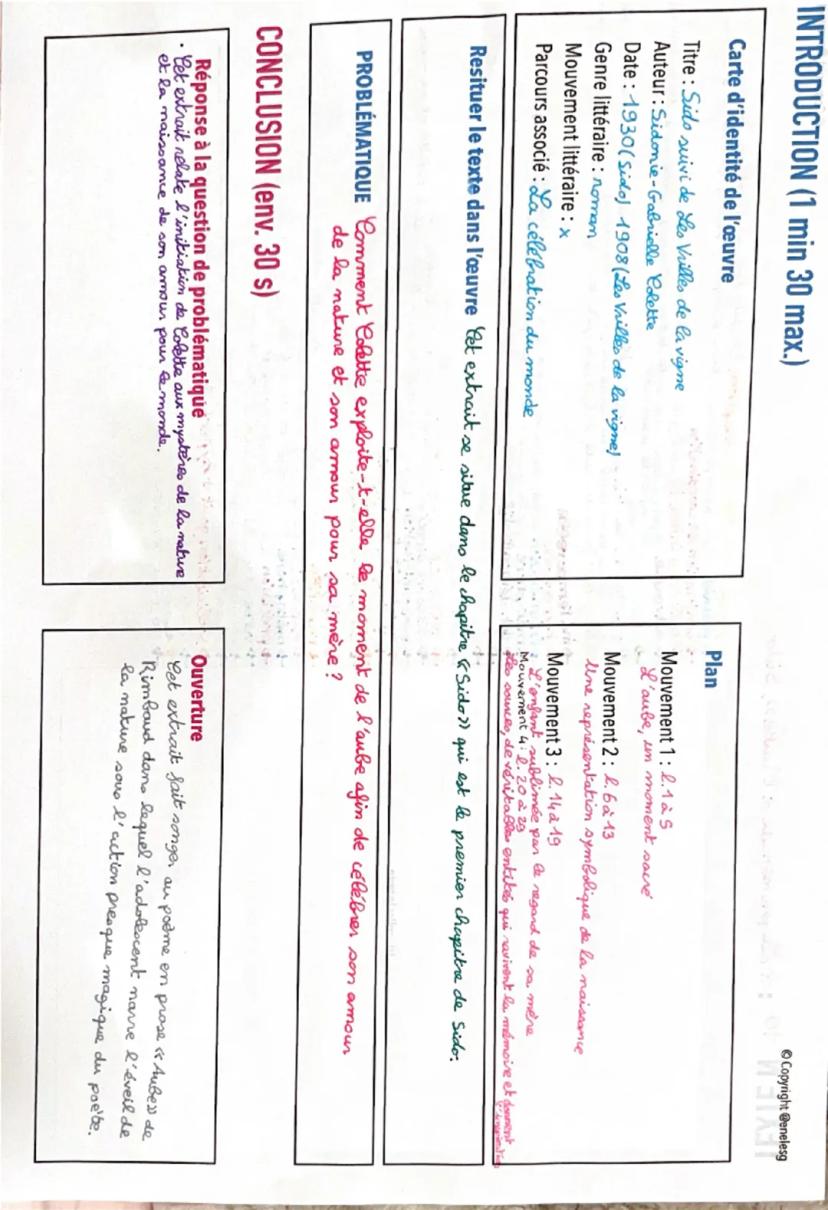 INTRODUCTION (1 min 30 max.)
© Copyright @enelesg
Carte d'identité de l'œuvre
Titre : Sido suivi de Les Vrilles de la vigne
Auteur : Sidonie-Gabrielle Colette
Date : 1930 (Sido) 1908 (Les Vrilles de la vigne)
Genre littéraire : roman
Mouvement littéraire : x
Parcours associé : La célébration du monde
Plan
Mouvement 1 : l. 1 à 5
L'aube, un moment sacré
Mouvement 2 : l. 6 à 13
Une représentation symbolique de la naissance
Mouvement 3 : l. 14 à 19
L'enfant sublimée par le regard de sa mère
Mouvement 4 : l. 20 à 29
Les sources, de véritables entités qui ravivent la mémoire et donnent
l'inspiration
Resituer le texte dans l'œuvre Cet extrait se situe dans le chapitre « Sido » qui est le premier chapitre de Sido.
PROBLÉMATIQUE Comment Colette exploite-t-elle le moment de l'aube afin de célébrer son amour
de la nature et son amour pour sa mère ?
CONCLUSION (env. 30 s)
Réponse à la question de problématique
• Cet extrait relate l'initiation de Colette aux mystères de la nature
et la naissance de son amour pour le monde.
Ouverture
Cet extrait fait songer au poème en prose « Aube » de
Rimbaud dans lequel l'adolescent narre l'éveil de
la nature sous l'action presque magique du poète.